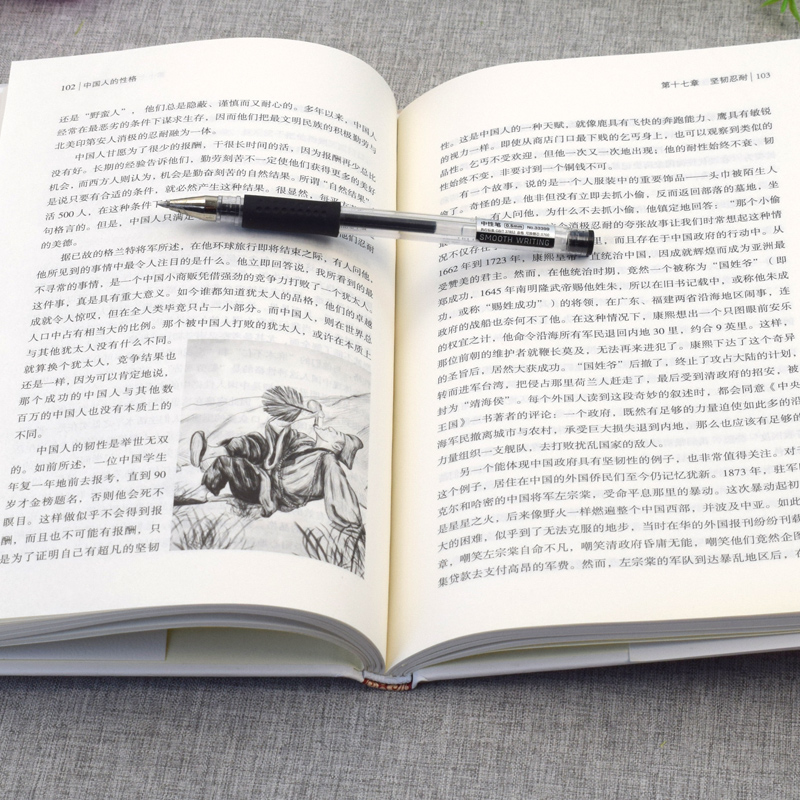 102 中国人的性格
还是“野蛮人”，他们总是隐蔽、谨慎而又耐心的。多年以来，中国人
经常在最恶劣的条件下谋求生存，因而他们把最文明民族的积极勤劳与
北美印第安人消极的忍耐融为一体。
中国人甘愿为了很少的报酬，干很长时间的活，因为报酬再少总比
没有好。长期的经验告诉他们，勤劳刻苦不一定使他们获得更多的美好
机会，而西方人则认为，机会是勤奋刻苦的自然结果。所谓“自然结果”，
是说只要有合适的条件，就必然产生这种结果。很显然，每平方
活 500 人，在这种条件下
句格言的。但是，中国人只满足
的美德。
据已故的格兰特将军所述，在他环球旅行即将结束之际，有人问他，
他所见到的事情中最令人注目的是什么。他立即回答说，我所看到的最
不寻常的事情，是一个中国小商贩凭借强劲的竞争力打败了一个犹太人。
这件事，真是具有重大意义。如今谁都知道犹太人的品格，他们的卓越
成就令人惊叹，但在全人类毕竟只占一小部分。而中国人，则在世界总
人口中占有相当大的比例。那个被中国人打败的犹太人，或许在本质上
与其他犹太人没有什么不同。
就算换个犹太人，竞争结果也
还是一样，因为可以肯定地说，
那个成功的中国人与其他数
百万的中国人也没有本质上的
不同。
中国人的韧性是举世无双
的。如前所述，一位中国学生
年复一年地前去报考，直到 90
岁才金榜题名，否则他会死不
瞑目。这样做似乎不会得到报
酬，而且也不可能有报酬，只
是为了证明自己有超凡的坚韧
中性笔
SMOOTH WRITING
第十七章 坚韧忍耐 103
性。这是中国人的一种天赋，就像鹿具有飞快的奔跑能力、鹰具有敏锐
的视力一样。即使从商店门口最下贱的乞丐身上，也可以观察到类似的
品性。乞丐不受欢迎，但他一次又一次地出现；他的耐性始终不衰、韧
性始终不变，非要讨到一个铜钱不可。
有一个故事，说的是一个人服装中的重要饰品——头巾被陌生人
偷了。奇怪的是，他非但没有立即去抓小偷，反而返回部落的墓地，坐
有人问他，为什么不去抓小偷，他镇定地回答：“那个小偷
消极忍耐的奇怪故事让我们时常想起这种情
而且存在于中国政府的行动中。从
1662 年到 1723 年，康熙皇帝一直统治中国，因成就辉煌而成为亚洲最
受赞美的君主。然而，在他统治时期，竟然一个被称为“国姓爷”（即
郑成功，1645 年南明隆武帝赐他姓朱，所以在旧书记载中，或称他朱成
功，或称“赐姓成功”）的将领，在广东、福建两省沿海地区闹事，连
政府的战船也奈何不了他。在这种情况下，康熙想出一个只图眼前安乐
的权宜之计，他命令沿海所有军民退回内地 30 里，约合 9 英里。这样，
那位前朝的维护者就鞭长莫及，无法再来进犯了。康熙下达了这个奇异
的圣旨后，居然大获成功。“国姓爷”后撤了，终止了攻占大陆的计划，
转而进军台湾，把侵占那里荷兰人赶走了，最后受到清政府的招安，被
封为“靖海侯”。每个外国人读到这段奇妙的叙述时，都会同意《中央
王国》一书著者的评论：一个政府，既然有足够的力量迫使如此多的沿
海军民撤离城市与农村，承受巨大损失退到内地，那么也应该有足够的
力量组织一支舰队，去打败扰乱国家的敌人。
另一个能体现中国政府具有坚韧性的例子，也非常值得关注。对于
这个例子，居住在中国的外国侨民们至今仍记忆犹新。1873 年，驻军
克尔和哈密的中国将军左宗棠，受命平息那里的暴动。这次暴动起初
是星星之火，后来像野火一样燃遍整个中国西部，并波及中亚。如此
大的困难，似乎到了无法克服的地步，当时在华的外国报刊纷纷刊载
章，嘲笑左宗棠自命不凡，嘲笑清政府昏庸无能，嘲笑他们竟然企图
集贷款去支付高昂的军费。然而，左宗棠的军队到达暴乱地区后，在